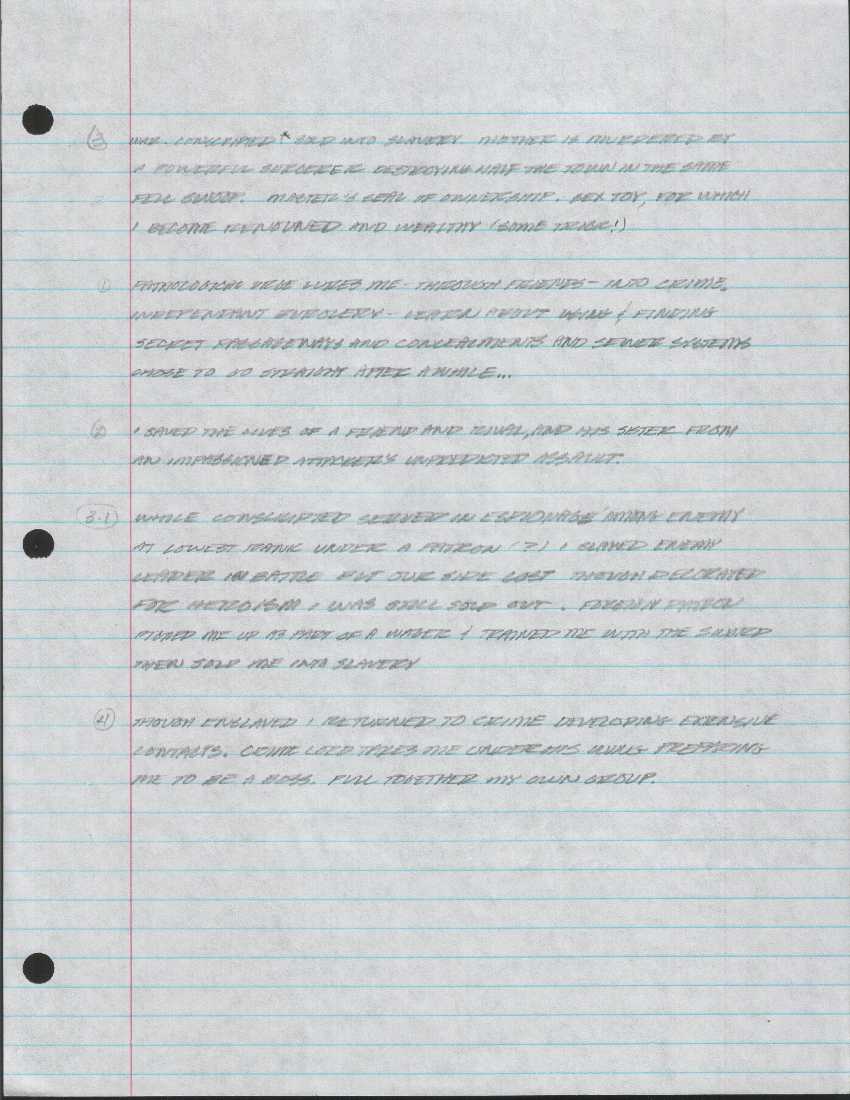 3 WAR. CONSCRIPTED & SOLD INTO SLAVERY MOTHER IS MURDERED BY
A POWERFUL SORCERER DESTROYING HALF THE TOWN IN THE SAME
FELL SWOOP. MASTER'S SEAL OF OWNERSHIP. SEX TOY, FOR WHICH
I BECOME RENOUNED AND WEALTHY (SOME TRICK!)
1 PATHOLOGICAL URGE LURES ME - THROUGH FRIENDS - INTO CRIME.
INDEPENDANT BURGLERY - LEARN ABOUT USING & FINDING
SECRET PASSAGEWAYS AND CONCEALMENTS AND SEWER SYSTEMS
CHOSE TO GO STRAIGHT AFTER AWHILE...
2 I SAVED THE LIVES OF A FRIEND AND RIVAL, AND HIS SISTER FROM
AN IMPASSIONED ATTACKER'S UNPREDICTED ASSAULT.
3.1 WHILE CONSCRIPTED SERVED IN ESPIONAGE AMONG ENEMY
AT LOWEST RANK UNDER A PATRON (?) I SLAYED ENEMY
LEADER IN BATTLE BUT OUR SIDE LOST THOUGH DECORATED
FOR HEROISM I WAS STILL SOLD OUT. FOREIGN PATRON
PICKED ME UP AS PART OF A WAGER & TRAINED ME WITH THE SWORD
THEN SOLD ME INTO SLAVERY
4 THOUGH ENSLAVED I RETURNED TO CRIME DEVELOPING EXTENSIVE
CONTACTS. CRIME LORD TAKES ME UNDER HIS WING PREPARING
ME TO BE A BOSS. PULL TOGETHER MY OWN GROUP.